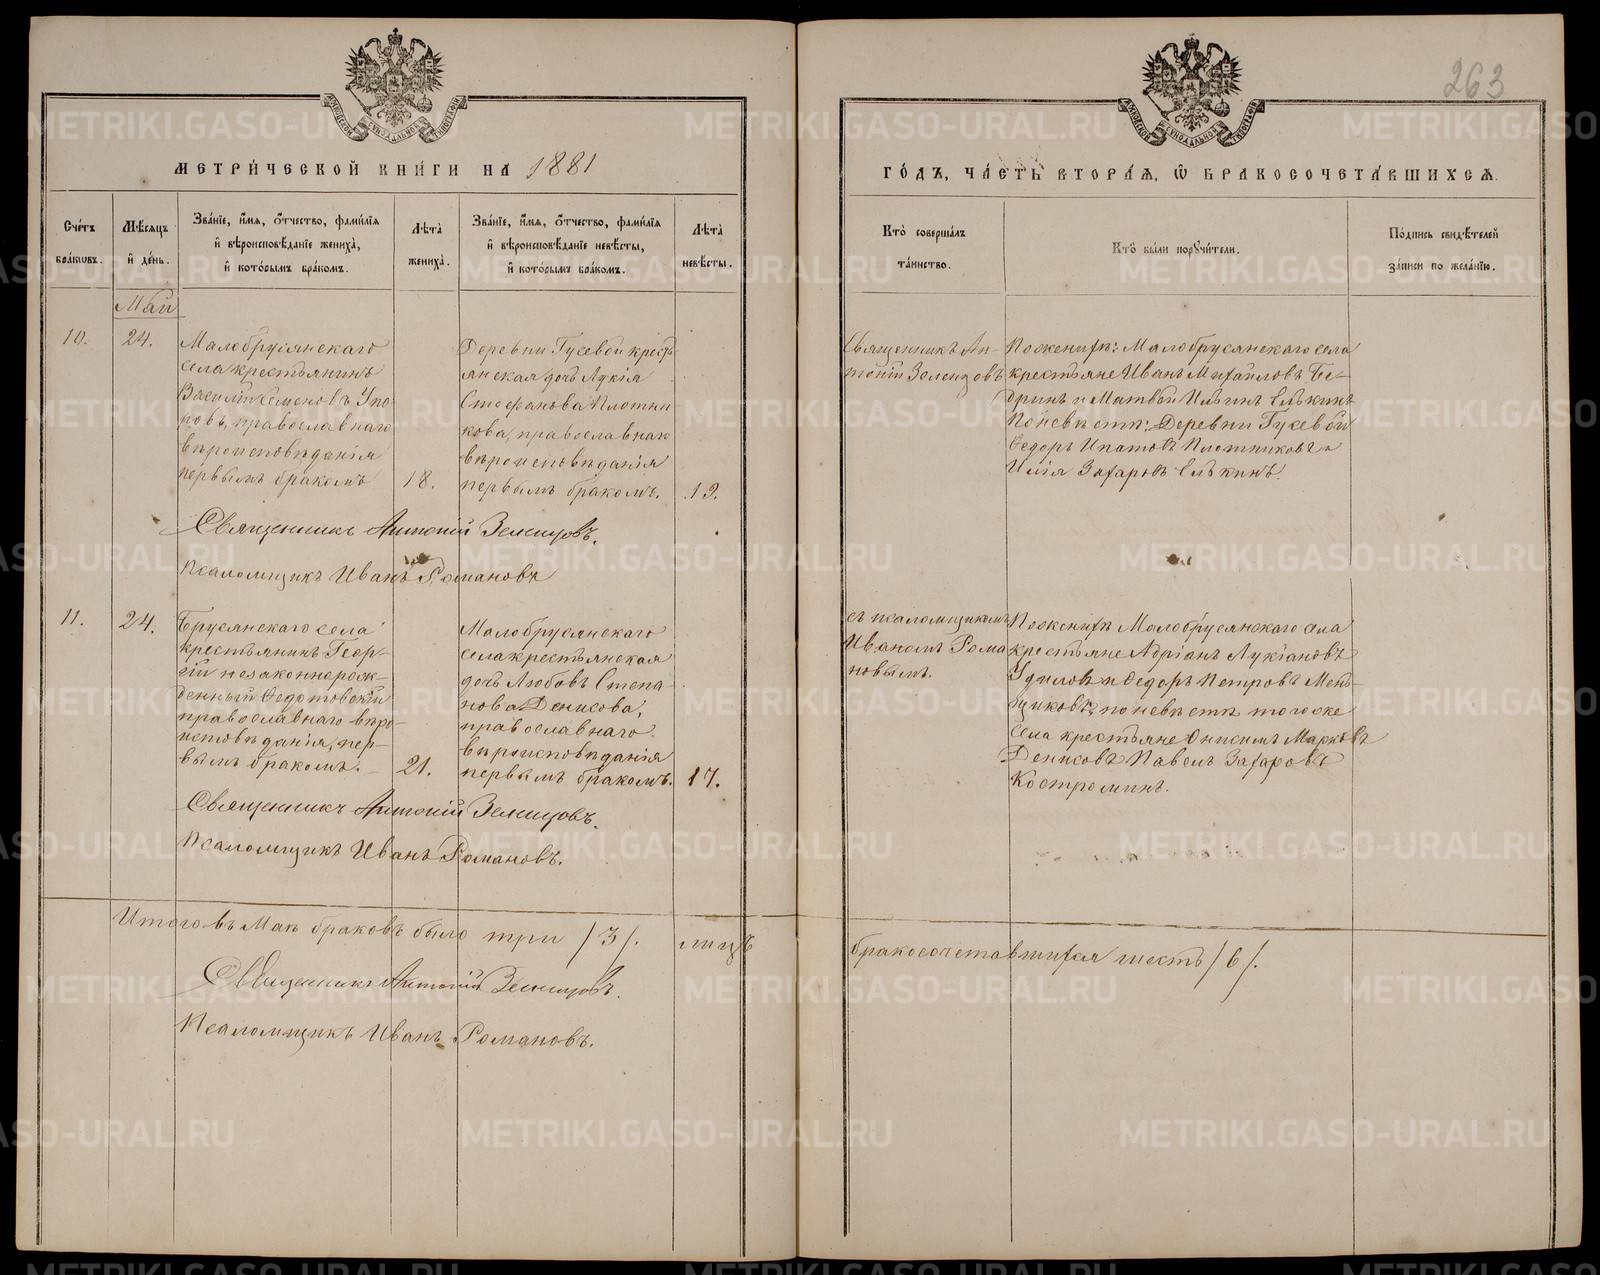 263
МЕТРИ́ЧЕСКОЙ КНИ́ГИ НА 1881
ГО́ДЪ, ЧА́СТЬ ВТОРА́Я, Ѡ БРАКОСОЧЕТА́ВШИХСЯ.
Сче́тъ бра́ковъ.
Мѣ́сяцъ и҆ де́нь.
Зва́ніе, и҆́мя, ѻ҆́тчество, фами́лія и҆ вѣроисповѣ́даніе жениха̀, и҆ кото́рымъ бра́комъ.
Лѣ́та жениха̀.
Зва́ніе, и҆́мя, ѻ҆́тчество, фами́лія и҆ вѣроисповѣ́даніе невѣ́сты, и҆ кото́рымъ бра́комъ.
Лѣ́та невѣ́сты.
Кто̀ соверша́лъ та́инство.
Кто̀ бы́ли пору́чители.
По́дпись свидѣ́телей за́писи по жела́нію.
Май
10.
24.
Малобрусянскаго
села крестьянинъ
Василій Семеновъ Упо
ровъ, православнаго
вѣроисповѣданія
первымъ бракомъ
18.
Деревни Гусевой кресть
янская дочь Лукія
Стефанова Плотни
кова, православнаго
вѣроисповѣданія
первымъ бракомъ.
19.
Священникъ Ан-
тоній Земляковъ
По женихѣ: Малобрусянскаго села
крестьяне Иванъ Михайловъ Бе-
дринъ и Матвѣй Ильинъ Елькинъ
По невѣстѣ: Деревни Гусевой
Ѳедоръ Ипатовъ Плотниковъ и
Илія Захаровъ Елькинъ.
Священникъ Антоній
Псаломщикъ Иванъ Романовъ
11.
24.
Брусянскаго села
крестьянинъ Геор-
гій незаконнорож-
денный Ѳедотовскій
православнаго вѣро-
исповѣданія, пер-
вымъ бракомъ.
21.
Малобрусянскаго
села крестьянская
дочь Любовь Степа-
нова Денисова,
православнаго
вѣроисповѣданія
первымъ бракомъ.
17.
съ псаломщикомъ
Иваномъ Рома
новымъ.
По женихѣ Малобрусянскаго села
крестьяне Адріанъ Лукіановъ
Удиловъ и Ѳедоръ Петровъ Мень
щиковъ, по невѣстѣ того же
села крестьяне Онисимъ Марковъ
Денисовъ Павелъ Захаровъ
Костроминъ.
Священникъ Антоній
Псаломщикъ Иванъ Романовъ.
Итого въ Маѣ браковъ было три /3/. лицъ бракосочетавшихся шесть /6/.
Священникъ Антоній
Псаломщикъ Иванъ Романовъ.
METRIKI.GASO-URAL.RU